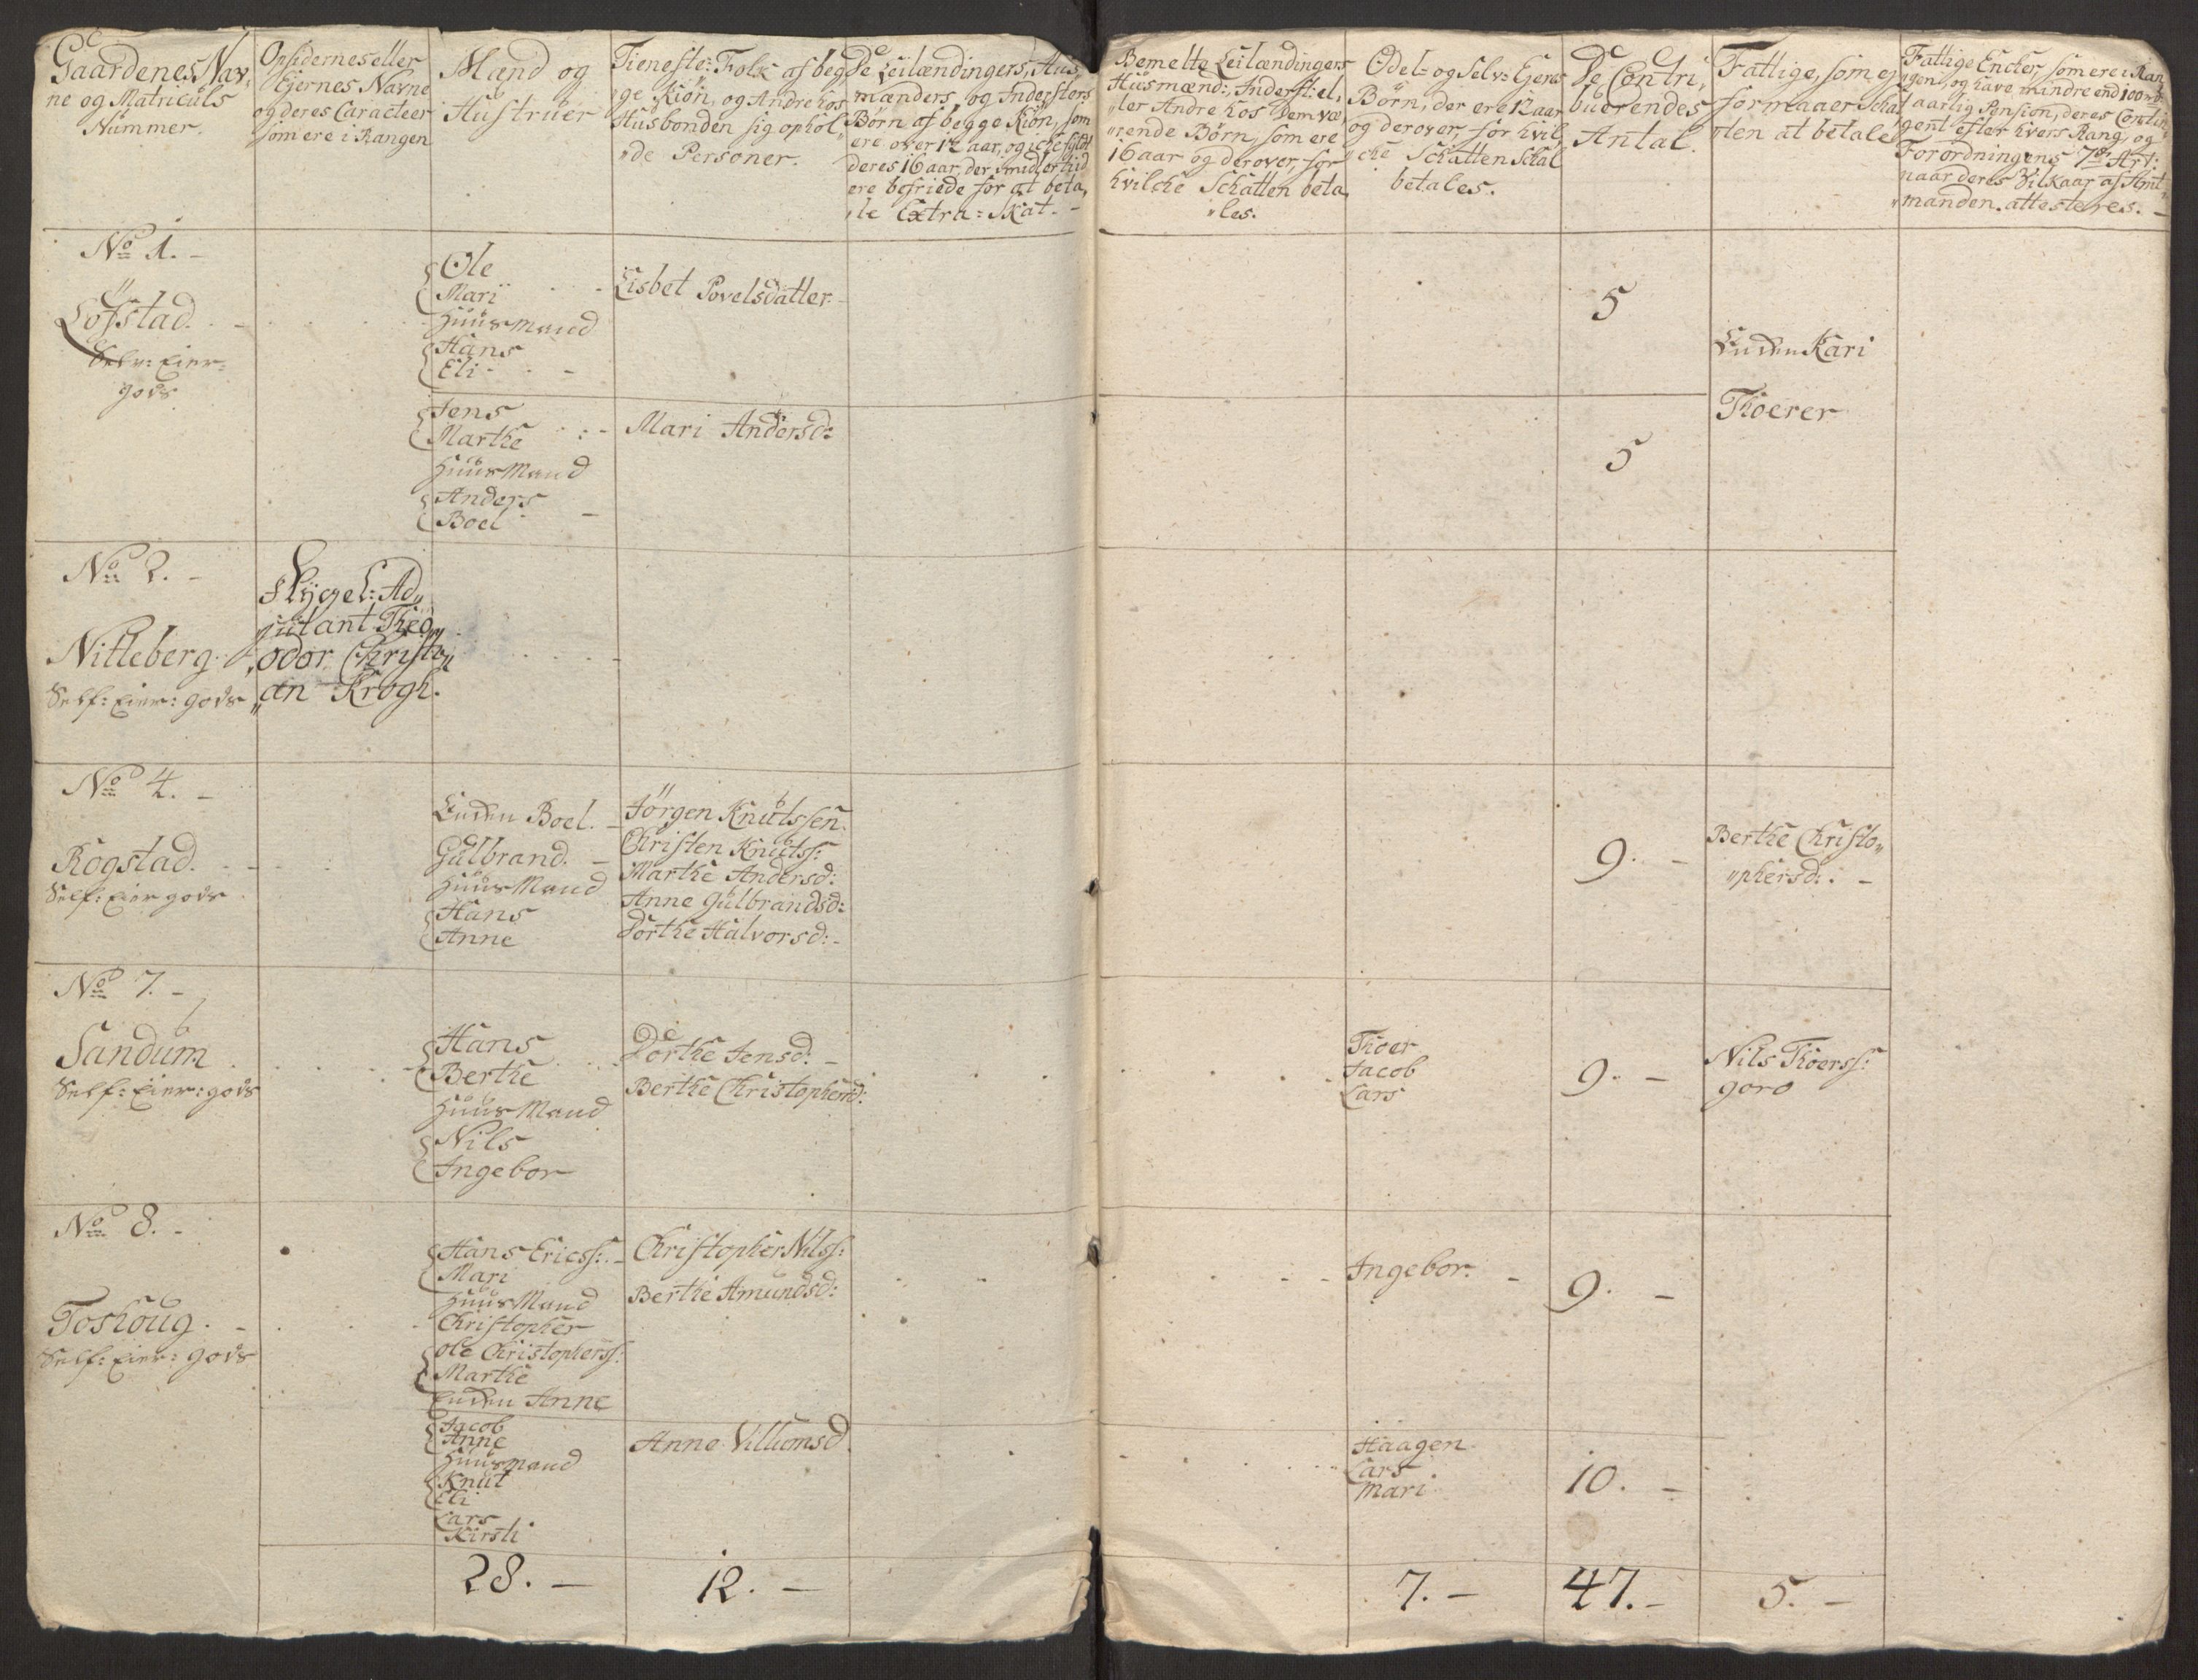 Gaardenes Nav,
ne og Matriculs
Nummer.
Opsidernes eller
Ejernes Navne
og deres Caracteer
som ere i Rangen
Mænd og
Hustruer
Tieneste: Folk af beg
ge Kiøn, og Andre hos
Husbonden sig ophol„
„de Personer.
De Leilændingers, Hus
mænders, og Indersters
Børn af begge Kiøn, som
ere over 12 aar, og icke fyldt
deres 16 aar, der imidlertid
ere befriede for at beta,
„le Extra=Skat. -
Bemelte Leilændingers
Husmænd:, Inderst: el,
„ler Andre hos Dem væ,
„rende Børn, som ere
16 aar og derover, for
hvilche Schatten beta,
„les.
Odel= og Selv= Ejeres
Børn, der ere 12 aar
og derover, for hvil,
che Schatten Schal
betales.
De Contri,
buerendes
Antal.
Fattige, som ej
formaaer Scha
„ten at betale
Fattige Encker, som ere i Ran
„gen, og have mindre end 100 rd
aarlig Pension, deres Contin
gent efter hvers Rang, og
Forordningens 7de Art:
naar deres Vilkaar af Amt
„manden attesteres. -
No 1. -
Löfstad. -
Selv: Eier=
gods
Ole
Mari
Huusmand
Hans
Eli -
Lisbet Povelsdatter
5
Enken Kari
Jens
Marthe
Huusmand
Anders
Boel -
Mari Andersd:
5
Thoerer
No 2. -
Nitteberg.
Self: Eier: gods
Flygel: Ad„
jutant Theo„
„odor Christi„
„an Krogh.
No 4. -
Rogstad.
Self: Eier gods
Enken Boel. -
Gulbrand. -
Huusmand
Hans
Anne
Jörgen Knutssen.
Christen Knutss:
Marthe Andersd:
Anne Gulbrandsd:
Dorthe Halvorsd: -
9. -
Berthe Christo„
„phersd: . -
No 7. -
Sandum
Self: Eier: gods
Hans
Berthe
Huusmand
Nils
Ingebor
Dorthe Jensd: -
Berthe Christophersd:
Thoer
Jacob
Lars
9. -
Nils Thoerss:
goro
No 8. -
Toshoug. -
Self: Eier: gods
Hans Ericss: -
Mari
Huusmand
Christopher
Ole Christopherss:
Marthe
Enken Anne
Christopher Nilss:
Berthe Amundsd:
Ingebor. -
9. -
Jacob
Anne
Huusmand
Knut
Eli
Lars
Kirsti
Anne Villumsd
Haagen
Lars
Mari
10. -
28. -
12. -
7. -
47. -
5. -